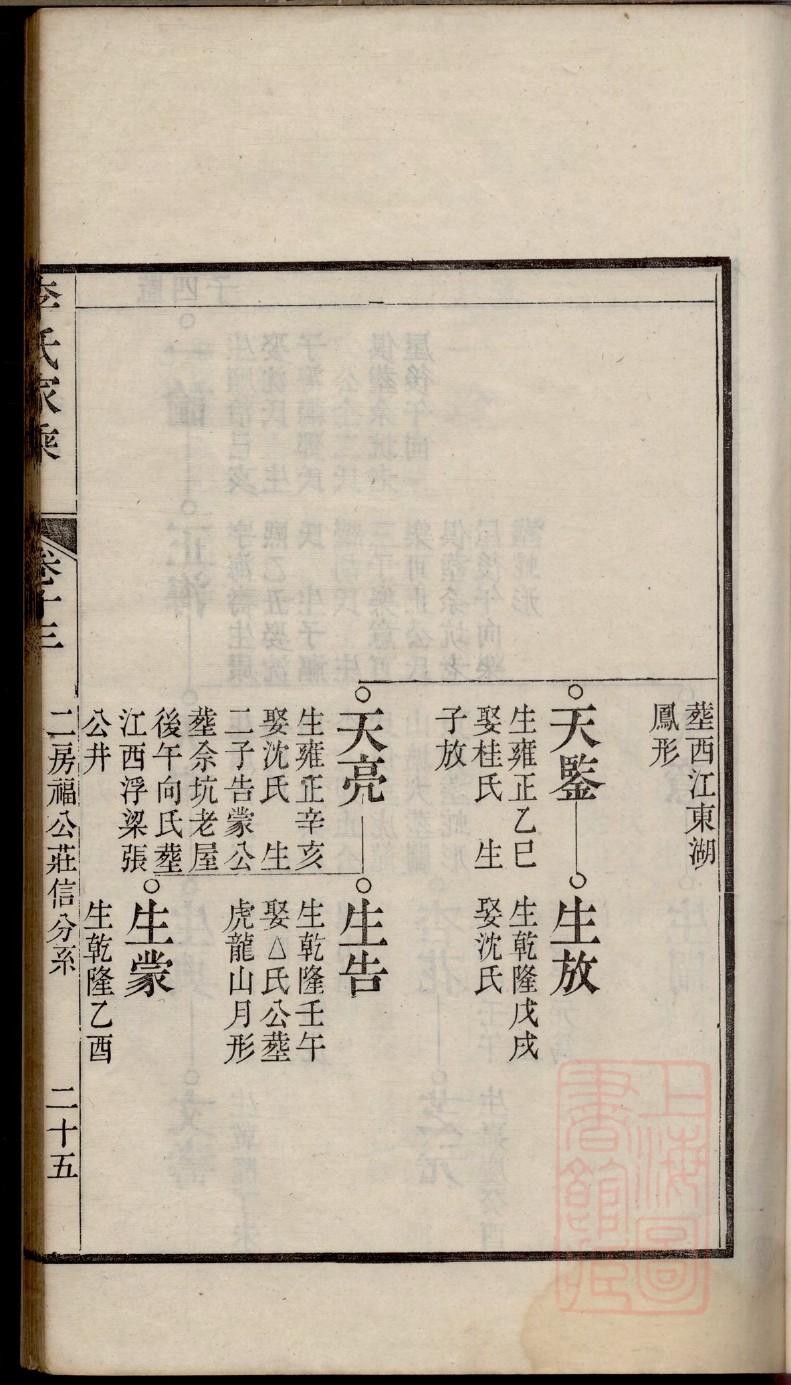 塟西江東湖
鳳形
天鑒
生雍正乙巳
娶桂氏 生
子放
生放
生乾隆戊戌
娶沈氏
天亮
生雍正辛亥
娶沈氏 生
二子告蒙公
塟佘坑老屋
後午向氏塟
江西浮梁張
公井
生告
生乾隆壬午
娶△氏公塟
虎龍山月形
生蒙
生乾隆乙酉
李氏家乘
卷十三
二房福公莊信分系
二十五
上海圖書館藏